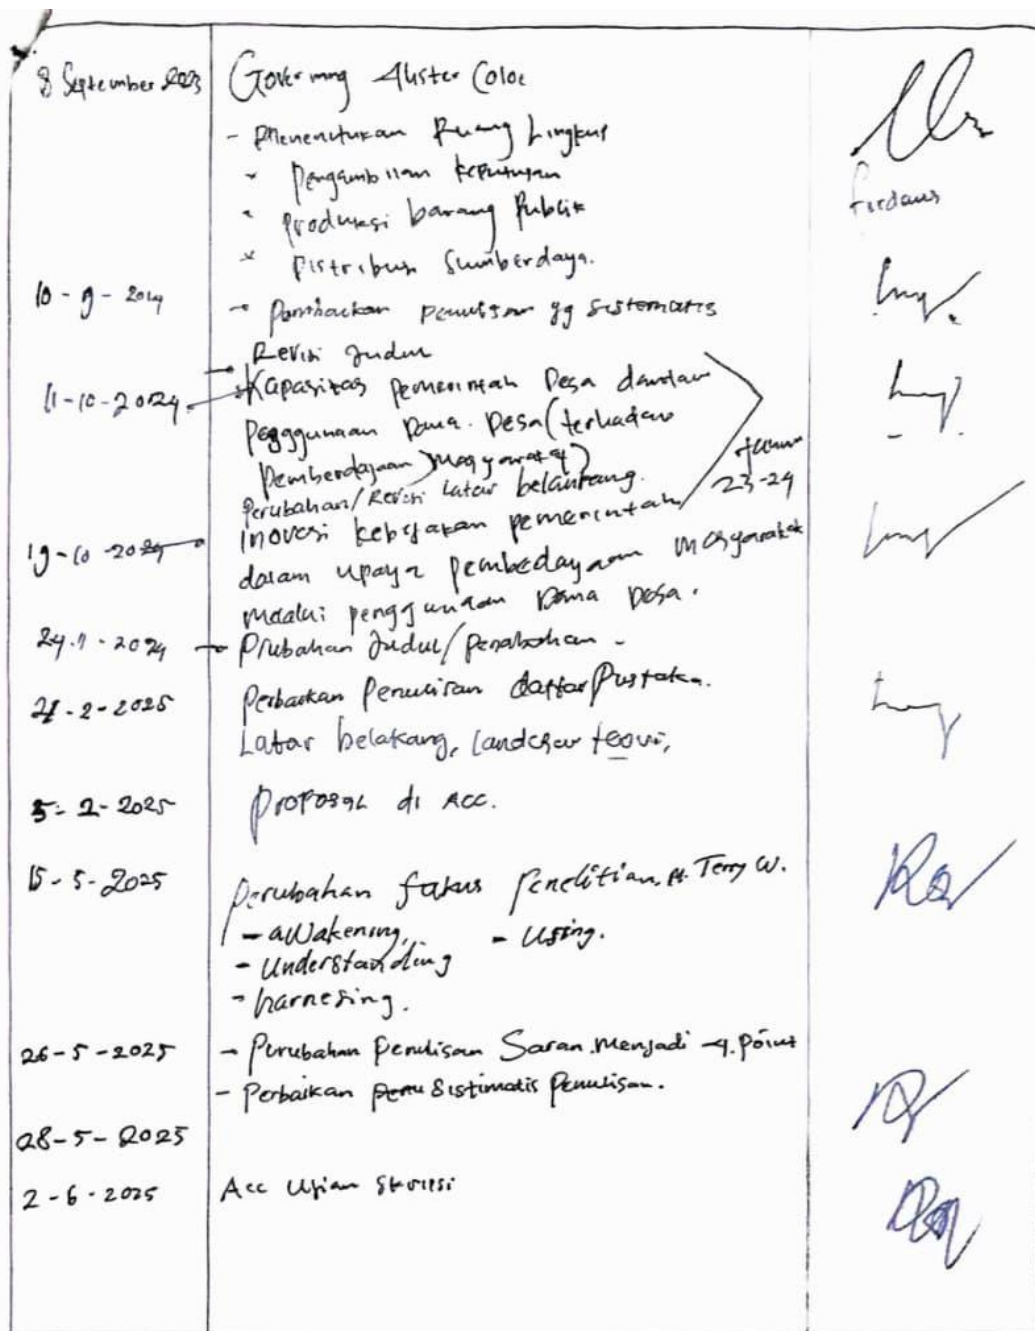 8 September 2023
Governing Alister Coloe
- Menentukan Ruang Lingkup
* Pengambilan Keputusan
* Produksi barang Publik
* Distribusi Sumberdaya.
10 - 9 - 2024
- Perbaikan penulisan yg sistematis
Revisi Judul
11-10-2024
Kapasitas pemerintah Desa dalam
Penggunaan Dana Desa (terhadap
Pemberdayaan Masyarakat)
Perubahan/Revisi Latar belakang.
23-24
19-10-2024
Inovasi kebijakan pemerintah
dalam upaya pembedayaan masyarakat
melalui penggunaan Dana Desa.
24.1-2024
Prubahan Judul/
Perbaikan Penulisan daftar Pustaka.
21-2-2025
Latar belakang, landasan teori,
5-2-2025
Proposal di Acc.
15-5-2025
Perubahan fokus Penelitian, Terry W.
- awakening, - Using.
- Understanding
- harnesing.
26-5-2025
- Perubahan Penulisan Saran Menjadi 4. Point
- Perbaikan Sistimatis Penulisan.
28-5-2025
2-6-2025
Acc Ujian Skripsi